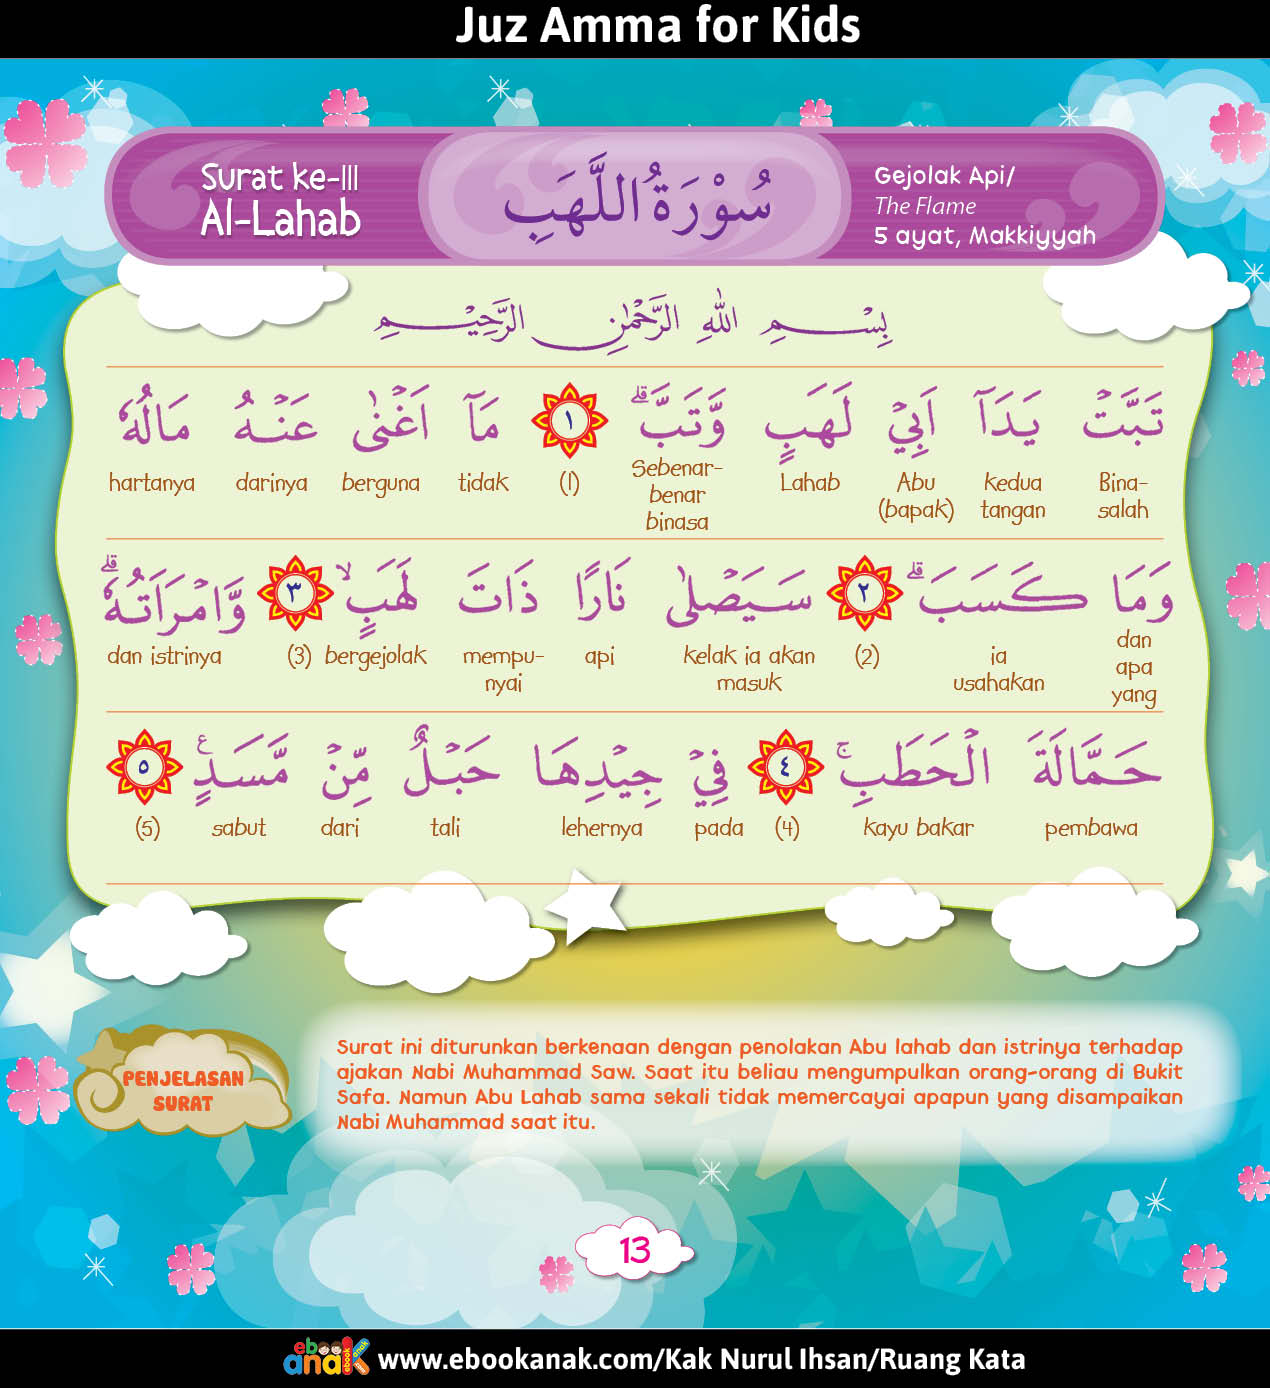 Juz Amma for Kids
Surat ke-111
Al-Lahab
سُوْرَةُ اللَّهَبِ
Gejolak Api/
The Flame
5 ayat, Makkiyyah
بِسْمِ اللّٰهِ الرَّحْمٰنِ الرَّحِيْمِ
تَبَّتْ يَدَآ اَبِيْ لَهَبٍ وَّتَبَّۗ ١ مَآ اَغْنٰى عَنْهُ مَالُهٗ
Bina- kedua Abu Lahab Sebenar- (1) tidak berguna darinya hartanya
salah tangan (bapak) benar
binasa
وَمَا كَسَبَۗ ٢ سَيَصْلٰى نَارًا ذَاتَ لَهَبٍۙ ٣ وَّامْرَاَتُهٗۗ
dan ia (2) kelak ia akan api mempu- bergejolak (3) dan istrinya
apa usahakan masuk nyai
yang
حَمَّالَةَ الْحَطَبِۚ ٤ فِيْ جِيْدِهَا حَبْلٌ مِّنْ مَّسَدٍ ࣖ ٥
pembawa kayu bakar (4) pada lehernya tali dari sabut (5)
PENJELASAN
SURAT
Surat ini diturunkan berkenaan dengan penolakan Abu lahab dan istrinya terhadap
ajakan Nabi Muhammad Saw. Saat itu beliau mengumpulkan orang-orang di Bukit
Safa. Namun Abu Lahab sama sekali tidak memercayai apapun yang disampaikan
Nabi Muhammad saat itu.
13
ebook anak www.ebookanak.com/Kak Nurul Ihsan/Ruang Kata